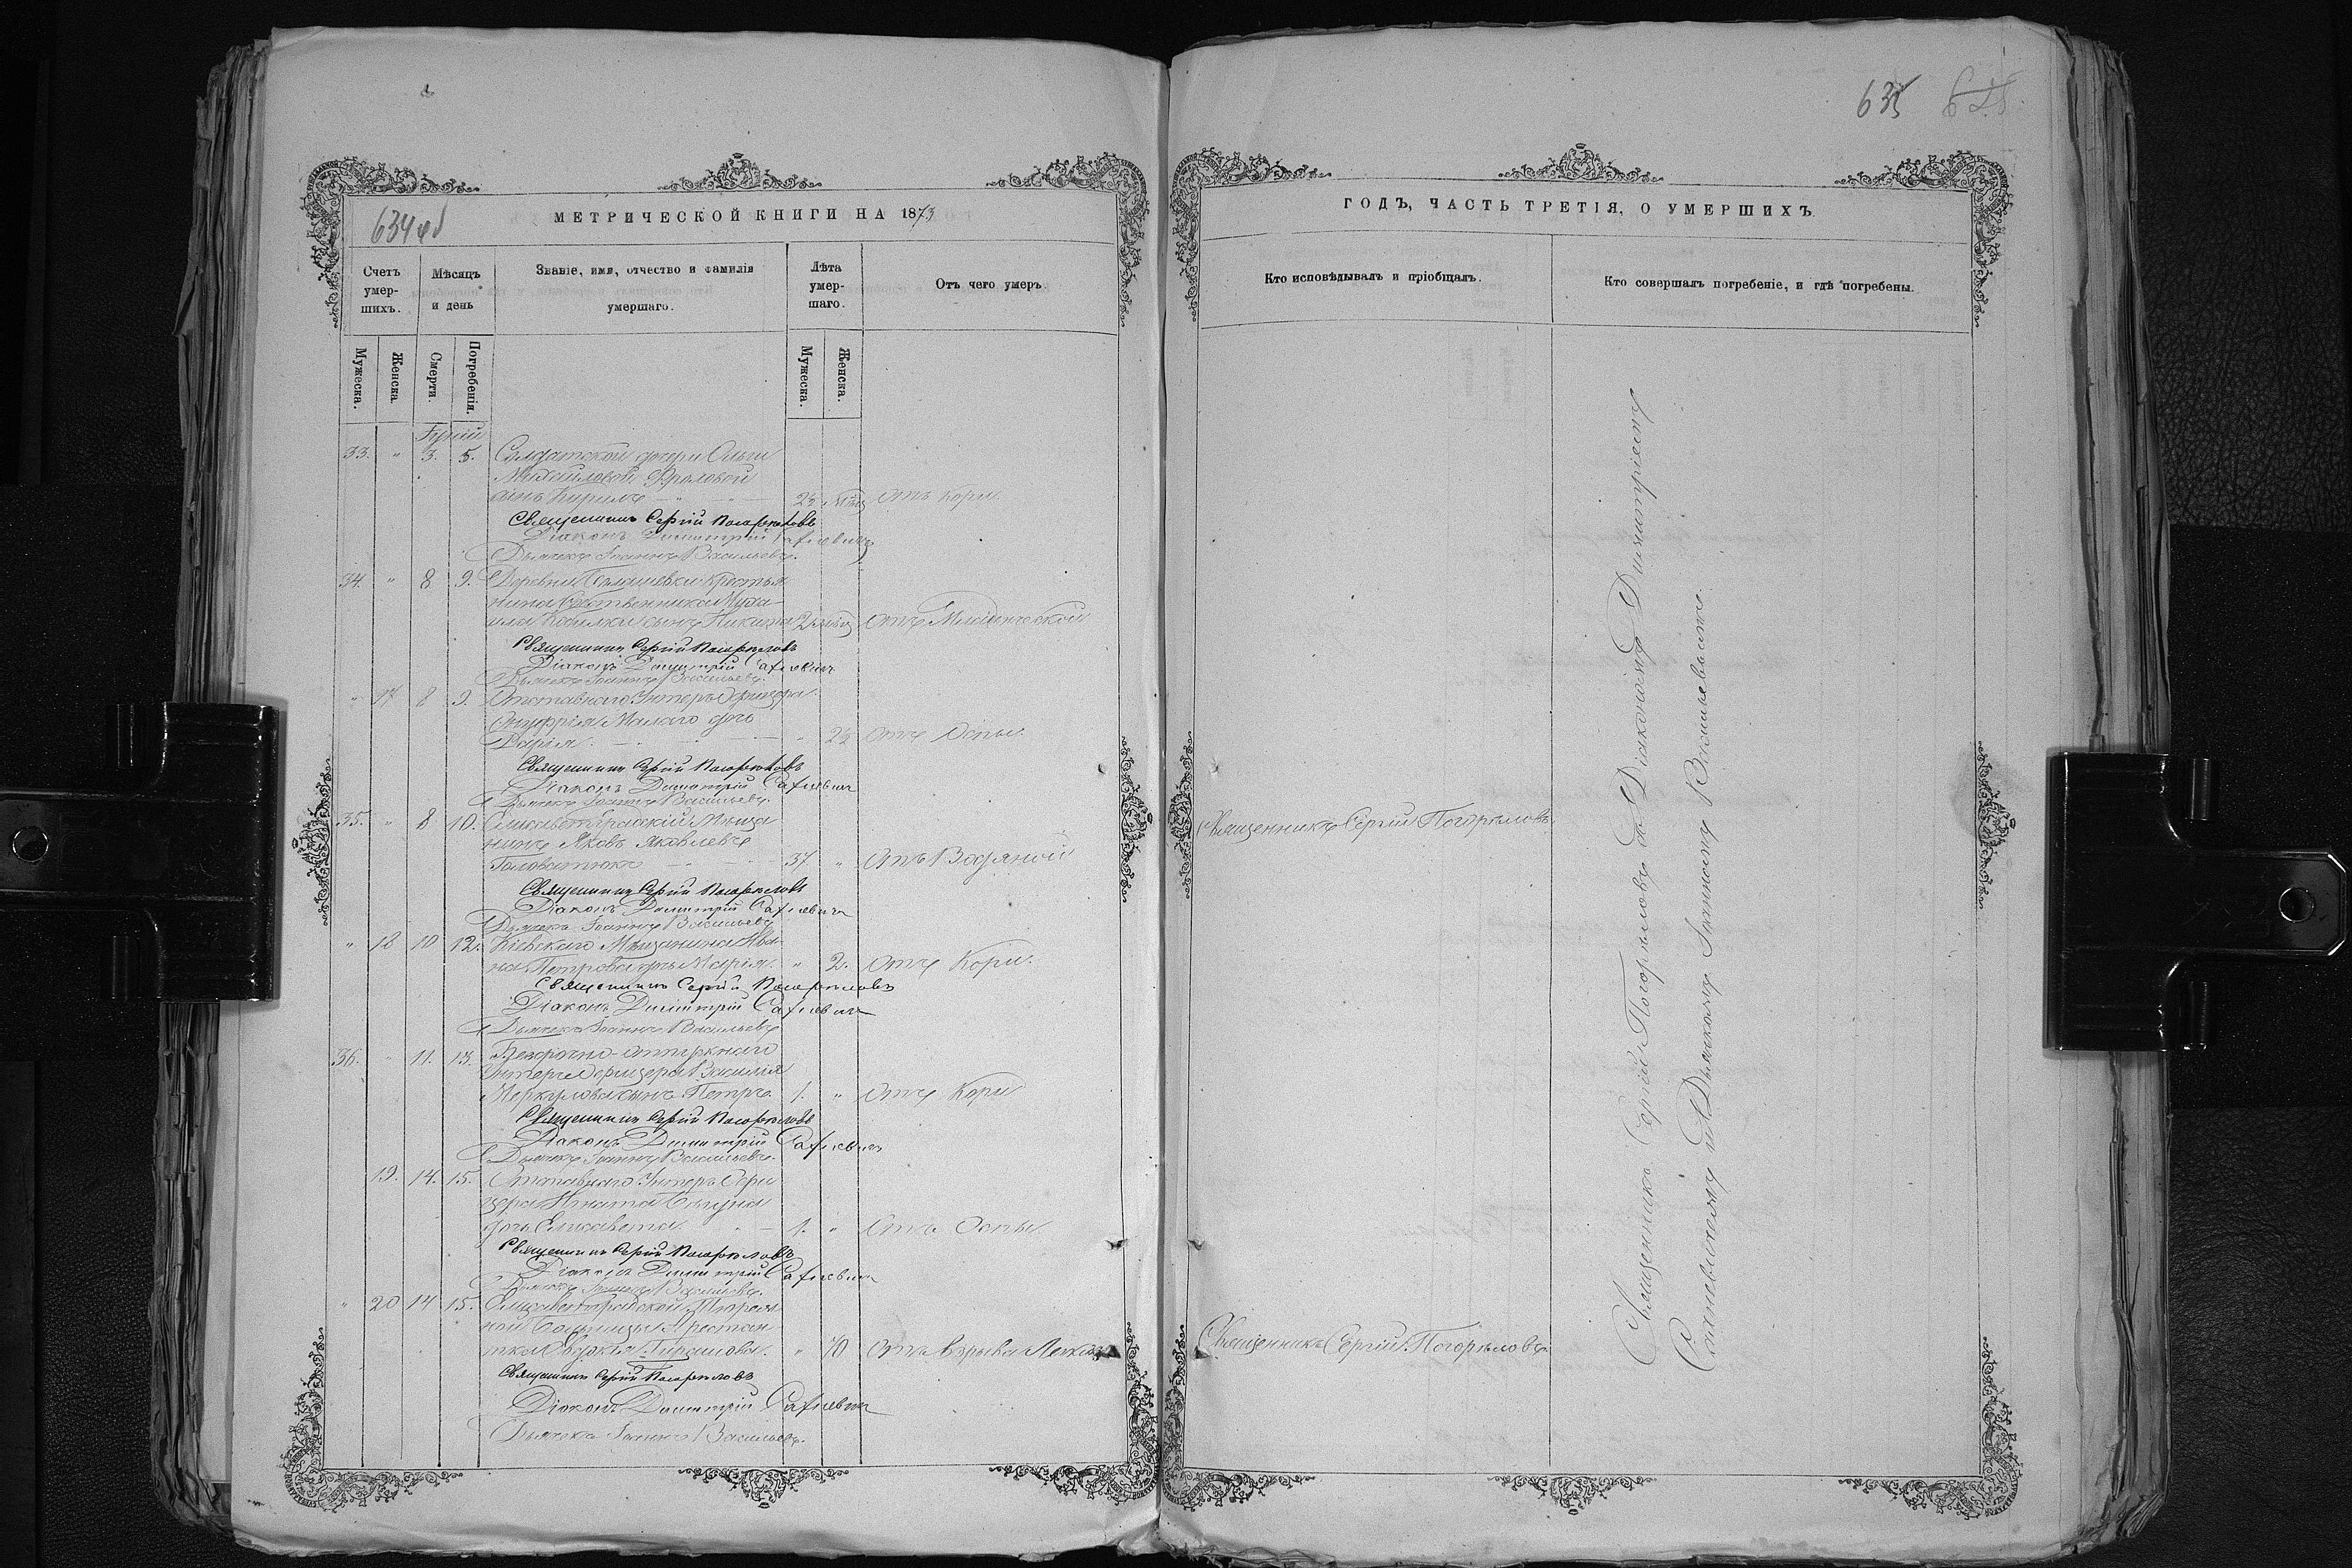 634 об
МЕТРИЧЕСКОЙ КНИГИ НА 1873
Счетъ умер- шихъ.
Мѣсяцъ и день
Званіе, имя, отчество и фамилія умершаго.
Лѣта умер- шаго.
Отъ чего умеръ.
Мужеска.
Женска.
Смерти.
Погребенія.
Мужеска.
Женска.
Іюній
33. " 3. 5. Солдатской дочери Ольги
Михайловой Фроловой
сынъ Кирилъ 2½ мѣс Отъ Кори.
Священникъ Сергій Погорѣловъ
Діаконъ Димитрій Сахневичъ
Дьячекъ Іоаннъ Васильевъ.
34. " 8 9. Деревни Балашевки Крестья
нина Собственника Миха-
ила сынъ Никита 2 мѣс Отъ Младенческой
Священникъ Сергій Погорѣловъ
Діаконъ Димитрій Сахневичъ
Дьячекъ Іоаннъ Васильевъ.
" 17 8 9. Отставнаго Унтеръ Офицера
Онуфрія Малаго дочь
Марія. " 2½ Отъ Оспы.
Священникъ Сергій Погорѣловъ
Діаконъ Димитрій Сахневичъ
Дьячекъ Іоаннъ Васильевъ.
35. " 8 10. Елисаветградскій Мѣща
нинъ Яковъ Яковлевъ
37. " Отъ Водяной
Священникъ Сергій Погорѣловъ
Діаконъ Димитрій Сахневичъ
Дьячекъ Іоаннъ Васильевъ
" 18 10 12. Кіевскаго Мѣщанина Ива-
на Петрова дочь Марія. " 2. Отъ Кори.
Священникъ Сергій Погорѣловъ
Діаконъ Димитрій Сахневичъ
Дьячекъ Іоаннъ Васильевъ
36. " 11. 13. Безсрочно-отпускнаго
Унтеръ Офицера Василія
Меркулова сынъ Петръ. 1. " Отъ Кори
Священникъ Сергій Погорѣловъ
Діаконъ Димитрій Сахневичъ
Дьячекъ Іоаннъ Васильевъ.
19. 14. 15. Отставнаго Унтеръ Офи
цера Игната
дочь Елисавета. 1. " Отъ Оспы.
Священникъ Сергій Погорѣловъ
Діаконъ Димитрій Сахневичъ
Дьячекъ Іоаннъ Васильевъ.
" 20 14 15. Елисаветградской Тюрем
ной Больницы Арестан
тка Евдокія " 70 Отъ Взрыва Легкаго
Священникъ Сергій Погорѣловъ
Діаконъ Димитрій Сахневичъ
Дьячекъ Іоаннъ Васильевъ.
635
ГОДЪ, ЧАСТЬ ТРЕТІЯ, О УМЕРШИХЪ
Кто исповѣдывалъ и пріобщалъ.
Кто совершалъ погребеніе, и гдѣ погребены.
Священникъ Сергій Погорѣловъ.
Священникъ Сергій Погорѣловъ.
Священникъ Сергій Погорѣловъ съ Діакономъ Димитріемъ
Сахневичемъ и Дьячкомъ Іоанномъ Васильевымъ.